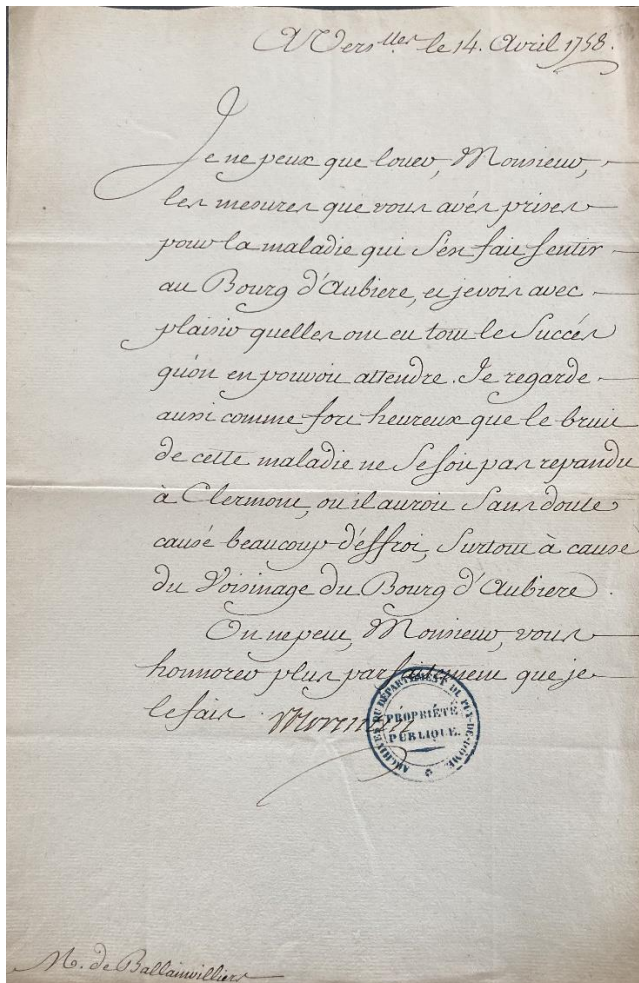 A Vers.lles le 14. Avril 1758.
Je ne peux que louer, Monsieur,
les mesures que vous avés prises
pour la maladie qui s'est fait sentir
au Bourg d'Aubiere, et je vois avec
plaisir quelles ont eu tout le Succés
qu'on en pouvoit attendre. Je regarde
aussi comme fort heureux que le bruit
de cette maladie ne se soit pas repandu
à Clermont, ou il auroit sans doute
causé beaucoup d'éffroi, surtout à cause
du Voisinage du Bourg d'Aubiere.
On ne peut, Monsieur, vous
honnorer plus parfaitement que je
le fais.
ARCHIVES DU DÉPARTEMENT DU PUY-DE-DÔME
PROPRIÉTÉ
PUBLIQUE.
M. de Ballainvilliers